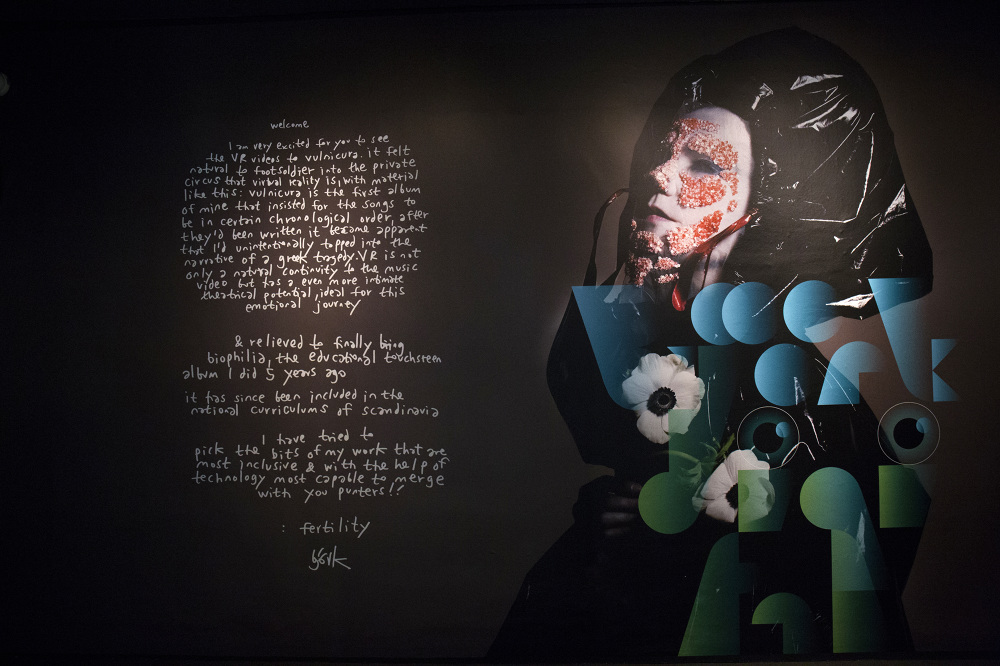 welcome
I am very excited for you to see
the VR videos to vulnicura. it felt
natural to footsoldier into the private
circus that virtual reality is, with material
like this: vulnicura is the first album
of mine that insisted for the songs to
be in certain chronological order, after
they'd been written it became apparent
that I'd unintentionally tapped into the
narrative of a greek tragedy. VR is not
only a natural continuity to the music
video but has a even more intimate
theatrical potential, ideal for this
emotional journey
& relieved to finally bring
biophilia, the educational touchsteen
album I did 5 years ago
it has since been included in the
national curriculums of scandinavia
I have tried to
pick the bits of my work that are
most inclusive & with the help of
technology most capable to merge
with you punters!!
: fertility
björk